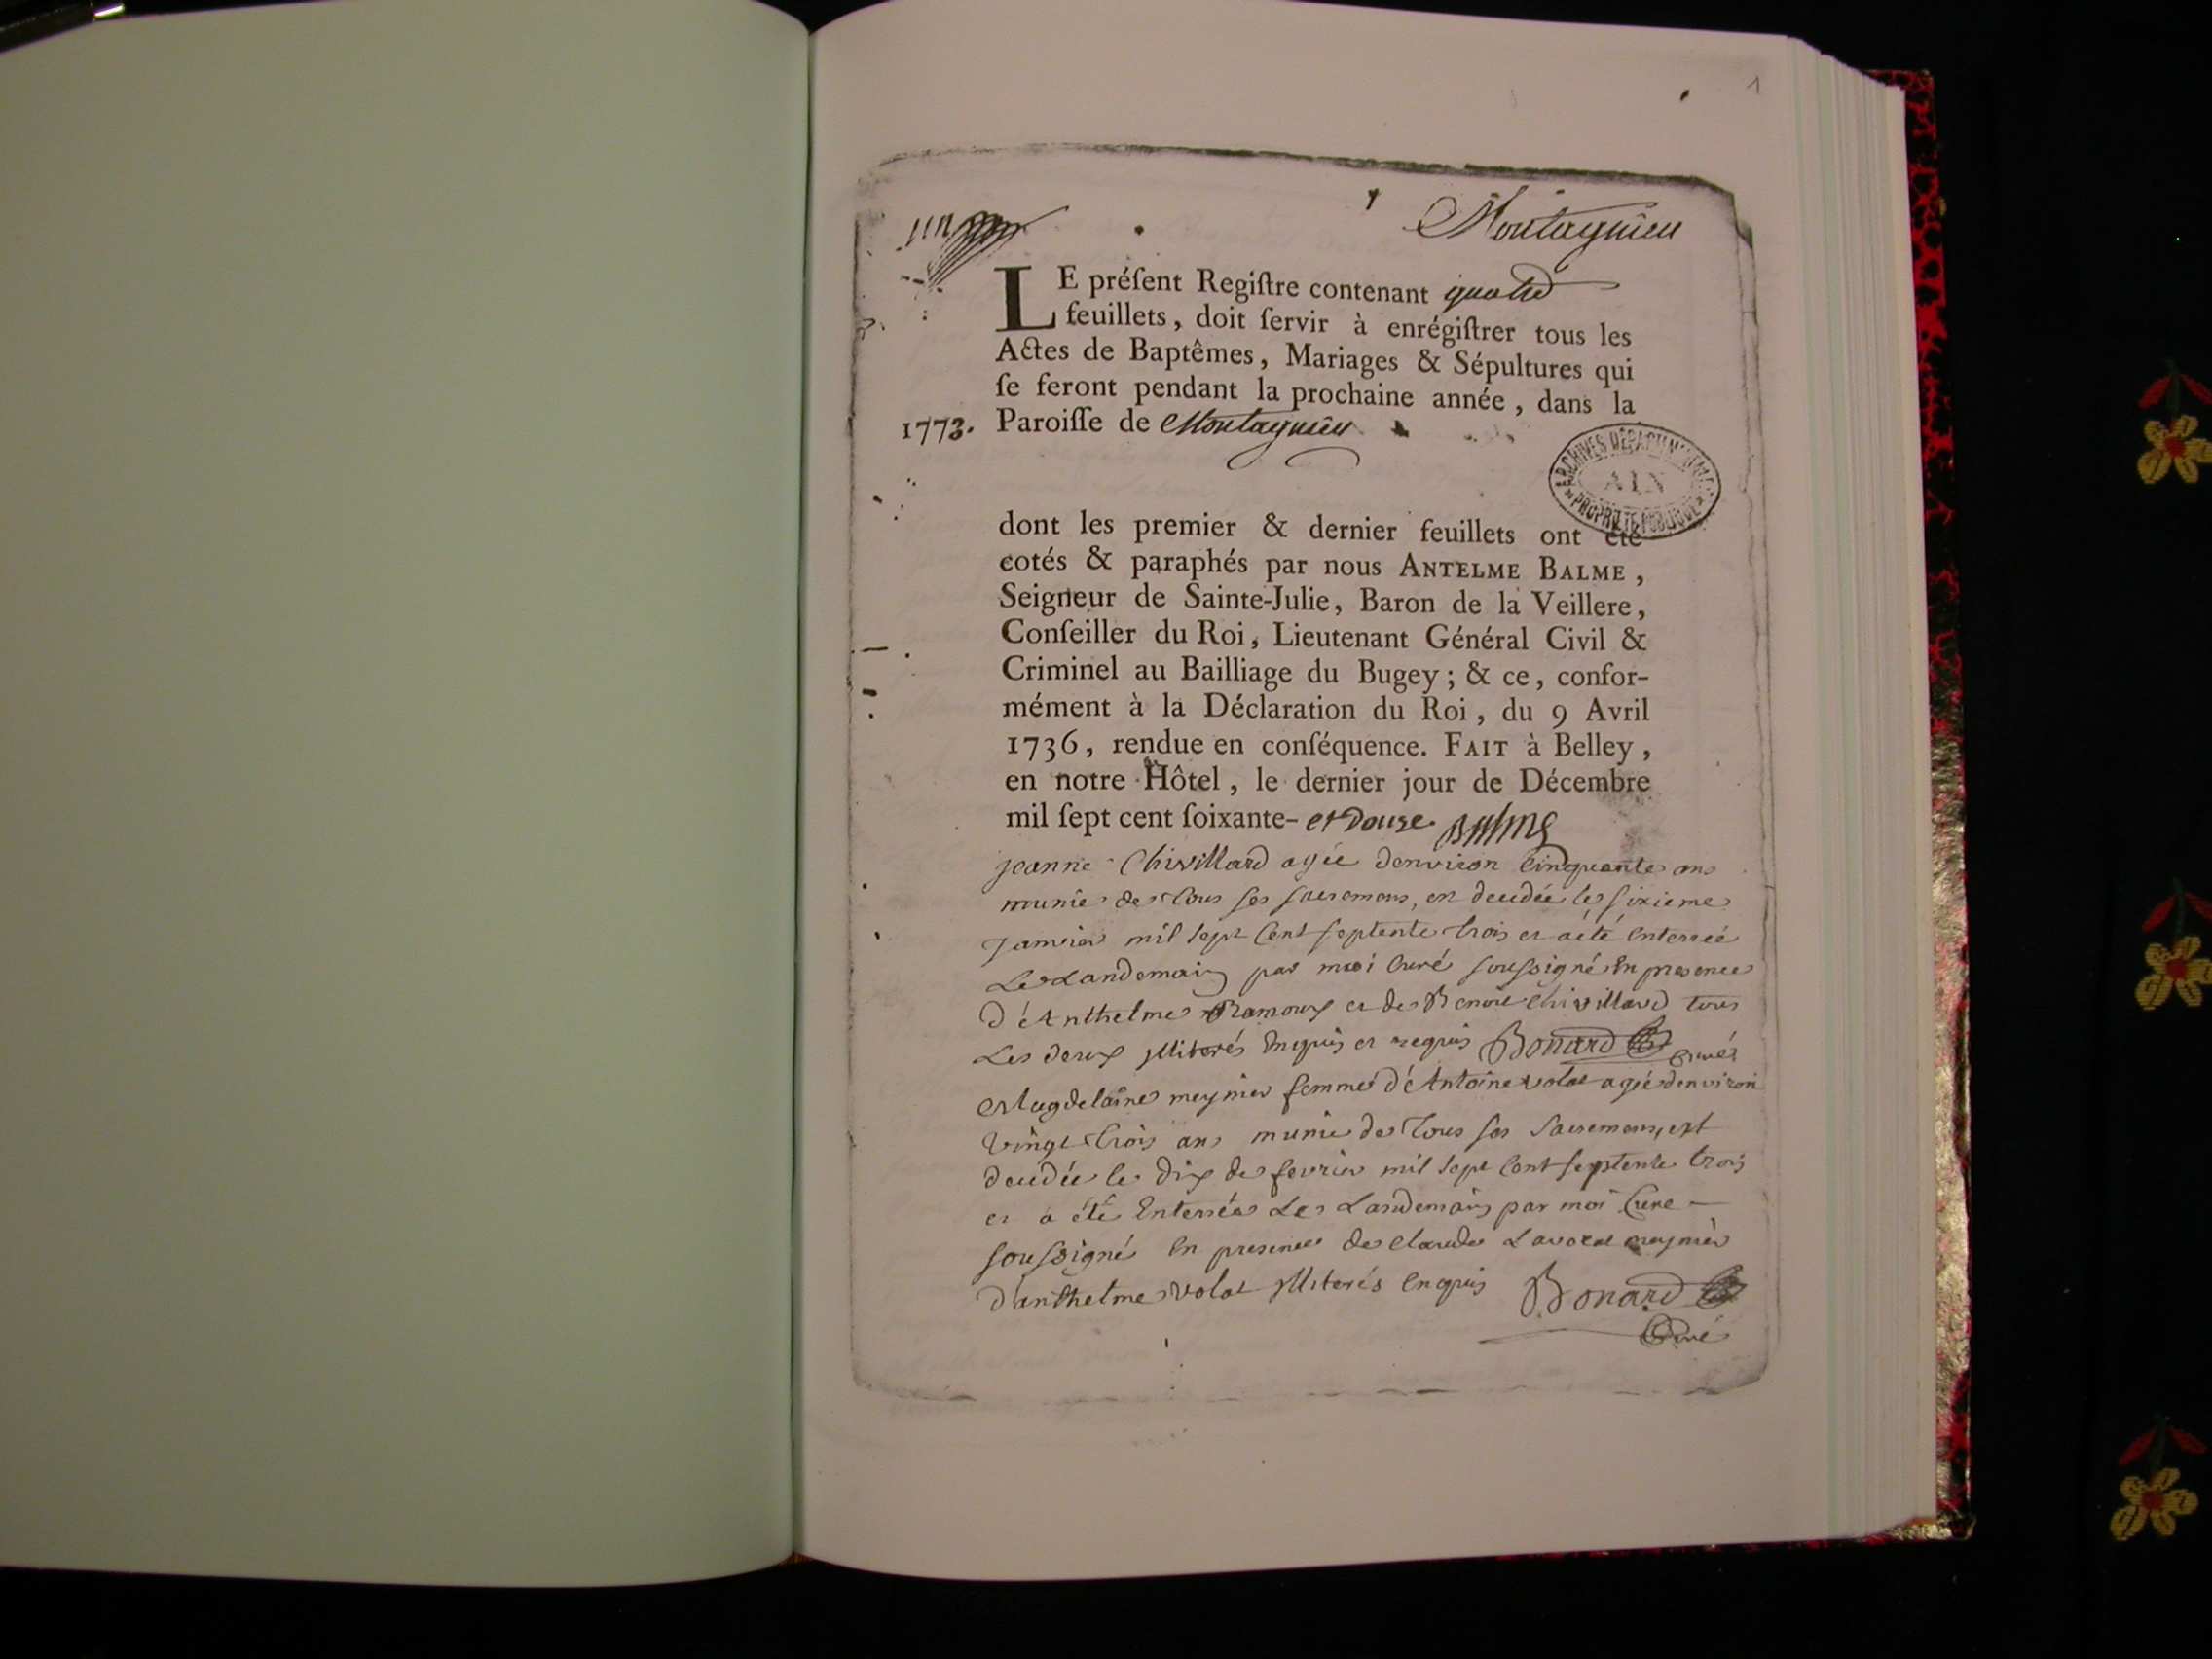 1
Montagnieu
LE préſent Regiſtre contenant quatre
feuillets, doit ſervir à enrégiſtrer tous les
Actes de Baptêmes, Mariages & Sépultures qui
ſe feront pendant la prochaine année, dans la
1773. Paroiſſe de Montagnieu
ARCHIVES DÉPARTEMENTALES
AIN
PROPRIÉTÉ PUBLIQUE
dont les premier & dernier feuillets ont été
cotés & paraphés par nous ANTELME BALME,
Seigneur de Sainte-Julie, Baron de la Veillere,
Conſeiller du Roi, Lieutenant Général Civil &
Criminel au Bailliage du Bugey; & ce, confor-
mément à la Déclaration du Roi, du 9 Avril
1736, rendue en conſéquence. FAIT à Belley,
en notre Hôtel, le dernier jour de Décembre
mil ſept cent ſoixante- et Douze Balme
jeanne Chivillard agée denviron Cinquante ans
munie de tous ses sacremens, est decedée le sixieme
Janvier mil sept Cent septente trois et a été enterrée
Le Landemain par moi Curé soussigné En presence
d'Anthelme Ramoux et de Benoit Chivillard tous
Les deux Illiterés Enquis et requis Bonard Curé
Magdelaine meynier femme d'Antoine volat agée denviron
Vingt trois ans munie de tous ses Sacremens, est
decedée le dix de fevrier mil sept Cent septente trois
et a été Enterrée Le Landemain par moi Curé
soussigné En presence de Claude meynier
d'anthelme volat Illiterés Enquis Bonard
Curé